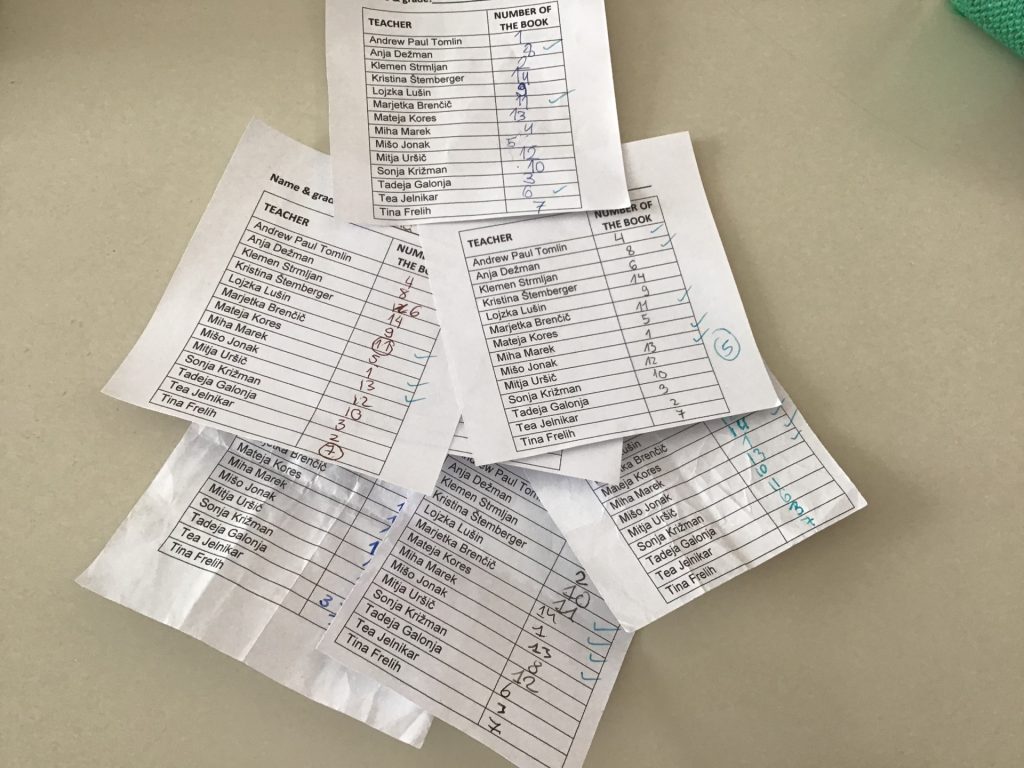 & grade:
TEACHER NUMBER OF THE BOOK
Andrew Paul Tomlin 1
Anja Dežman
Klemen Strmljan
Kristina Štemberger 14
Lojzka Lušin 9
Marjetka Brenčič 11
Mateja Kores 13
Miha Marek 4
Mišo Jonak 5
Mitja Uršič 12
Sonja Križman 10
Tadeja Galonja 3
Tea Jelnikar 6
Tina Frelih 7
Name & grad
TEACHER
Andrew Paul Tomlin 4
Anja Dežman 8
Klemen Strmljan 6
Kristina Štemberger 14
Lojzka Lušin 9
Marjetka Brenčič 11
Mateja Kores 5
Miha Marek 1
Mišo Jonak 13
Mitja Uršič 12
Sonja Križman 10
Tadeja Galonja 3
Tea Jelnikar 2
Tina Frelih 7
TEACHER NUMBER OF THE BOOK
Andrew Paul Tomlin 4
Anja Dežman 8
Klemen Strmljan 6
Kristina Štemberger 14
Lojzka Lušin 9
Marjetka Brenčič 11
Mateja Kores 5
Miha Marek 1
Mišo Jonak 13
Mitja Uršič 12
Sonja Križman 10
Tadeja Galonja 3
Tea Jelnikar 2
Tina Frelih 7
5
Brenčič
Mateja Kores
Miha Marek
Mišo Jonak
Mitja Uršič
Sonja Križman
Tadeja Galonja
Tea Jelnikar
Tina Frelih 3
Paul
Anja Dežman
Klemen Strmljan
Kristina Štemberger 2
Lojzka Lušin 10
Marjetka Brenčič 11
Mateja Kores 14
Miha Marek 1
Mišo Jonak 13
Mitja Uršič 8
Sonja Križman 12
Tadeja Galonja 6
Tea Jelnikar 3
Tina Frelih 7
Lušin
Brenčič
Mateja Kores 14
Miha Marek 1
Mišo Jonak 13
Mitja Uršič 10
Sonja Križman 11
Tadeja Galonja 6
Tea Jelnikar 3
Tina Frelih 7